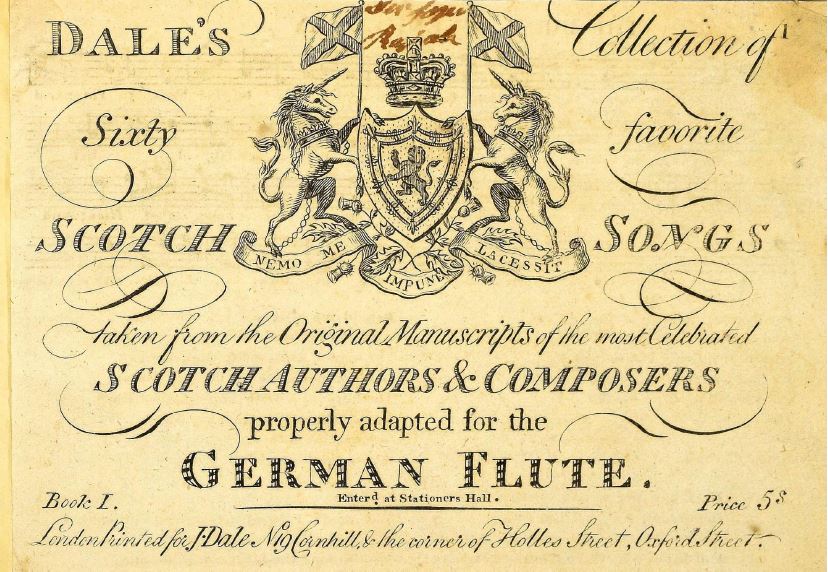 DALE'S Collection of
Sixty favorite
SCOTCH SONGS
NEMO ME IMPUNE LACESSIT
taken from the Original Manuscripts of the most Celebrated
SCOTCH AUTHORS & COMPOSERS
properly adapted for the
GERMAN FLUTE.
Enterd. at Stationers Hall.
Book I. Price 5s
London Printed for J. Dale No 19 Cornhill, & the corner of Holles Street, Oxford Street.